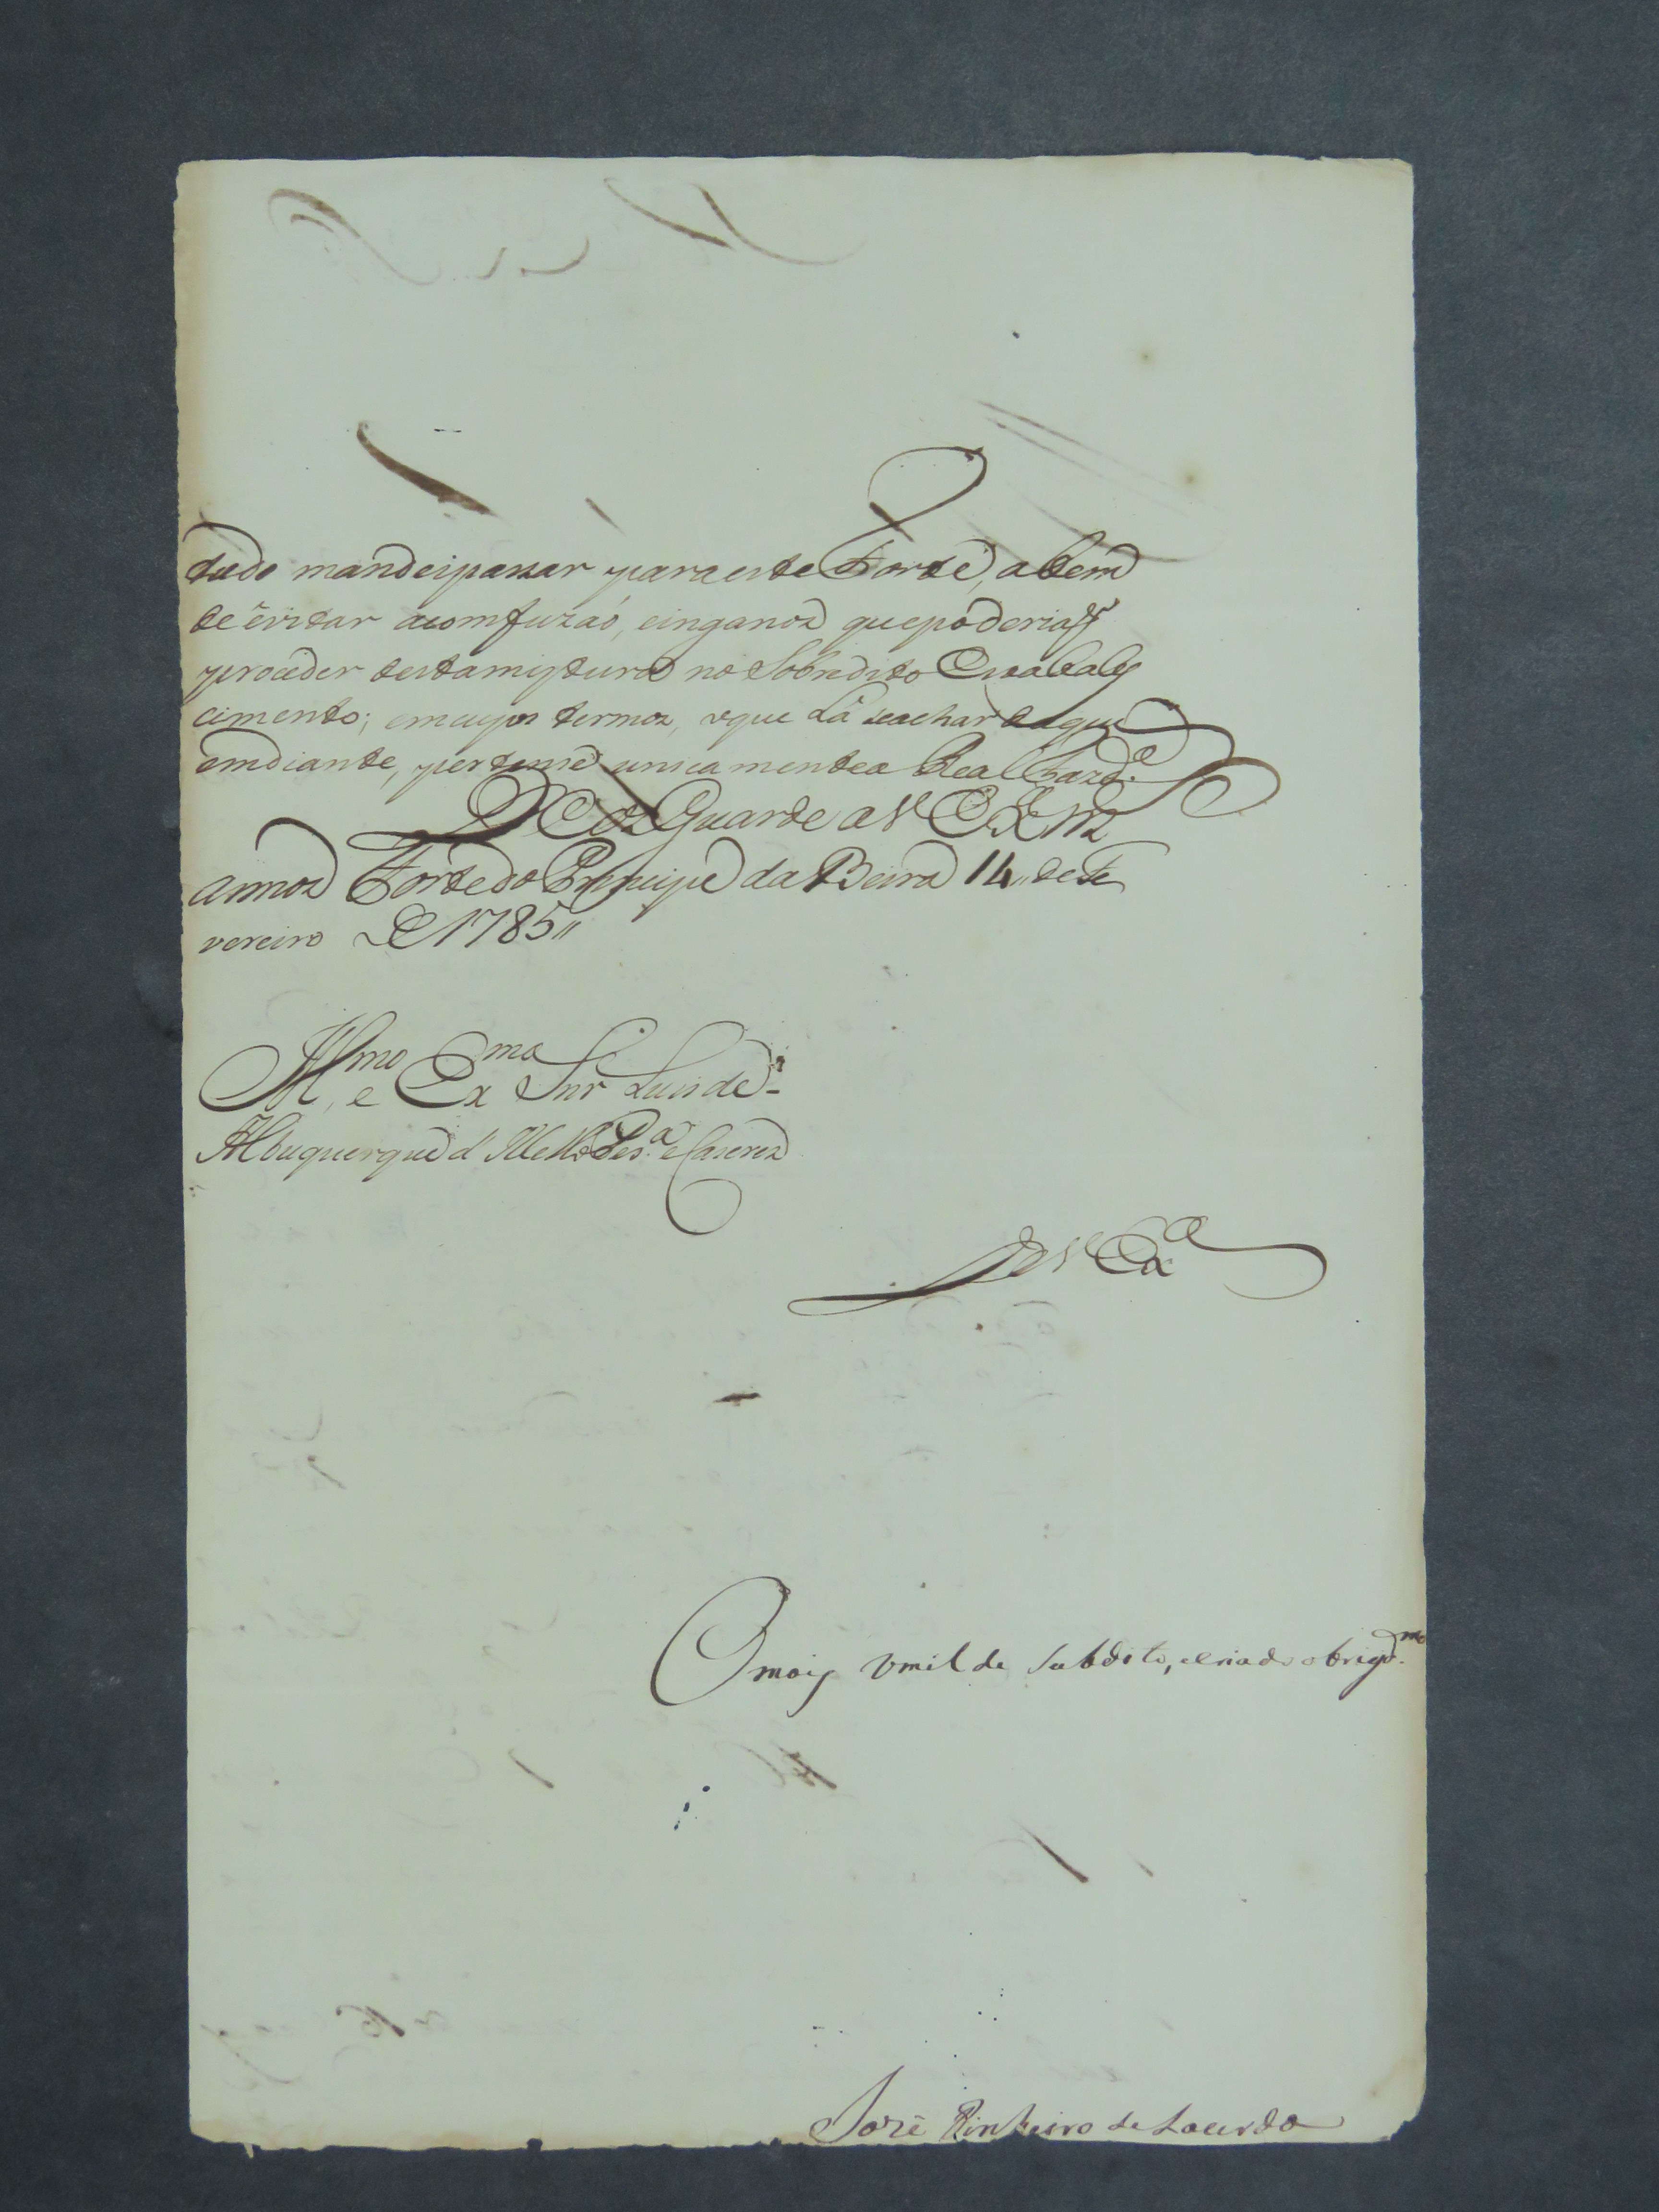 tudo mandei passar para este Forte, a bem
de evitar a comfuzaõ, e inganos que poderiaõ
proceder desta mistura no Sobredito Estabale
cimento; em cujos termos, o que Lá se achar daqui
emdiante, pertense unicamente a Real Fazd.ª
D.s Guarde a V Ex.ª m.s
annos Forte do Principe da Beira 14,, de Fe
vereiro de 1785,,
Illmo, e Exmo Snr Luis de
Albuquerque d' Mello Per.ª e Caseres
De V Exª
O mais Vmilde Subdito, e criado obrigd.mo
Jozé Pinheiro de Lacerda